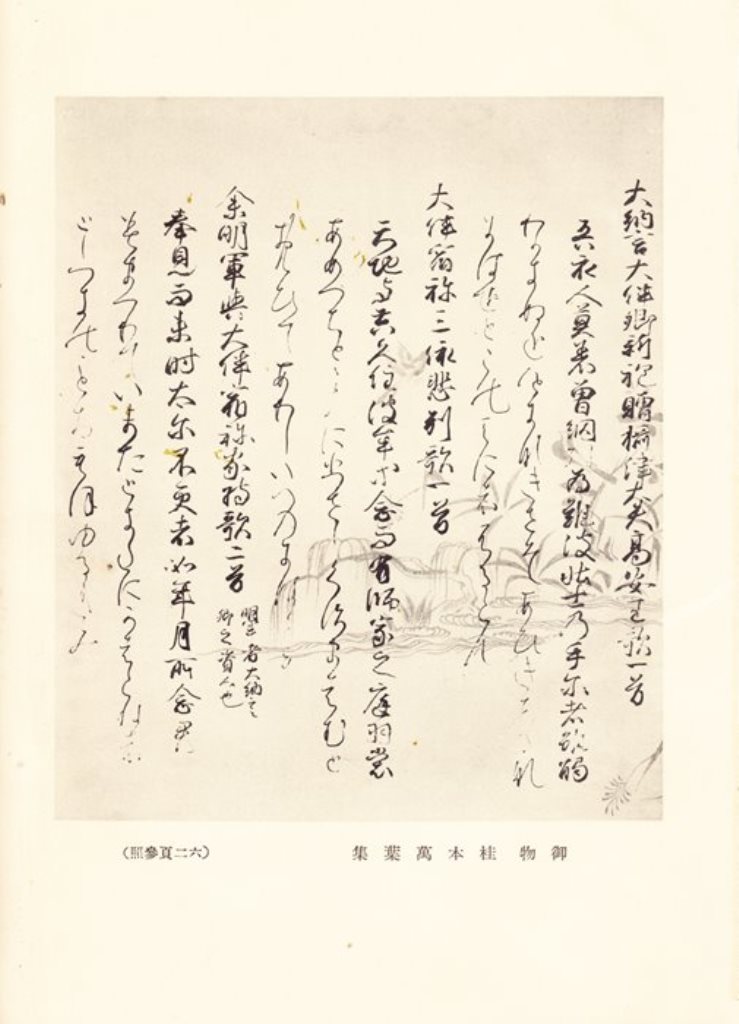 大納言大伴卿新袍贈攝津大夫高安王歌一首
吾衣人莫著曽網引為難波壮士乃手尓者雖觸
わかきぬをひとになきせそあひきする
なにはをとこのてにはふるとも
大伴宿祢三依悲別歌一首
天地与共久住波牟等念而有師家之庭羽裳
あめつちとともにひさしくすまはむと
おもひてありしいへのにはも
余明軍與大伴宿祢家持歌二首
明軍者大納言
卿之資人也
奉見而未時太尓不更者如年月所念君
みまつりていまたときたにかはらねは
としつきのことおもほゆるきみ
御物 桂本萬葉集
（六二頁參照）